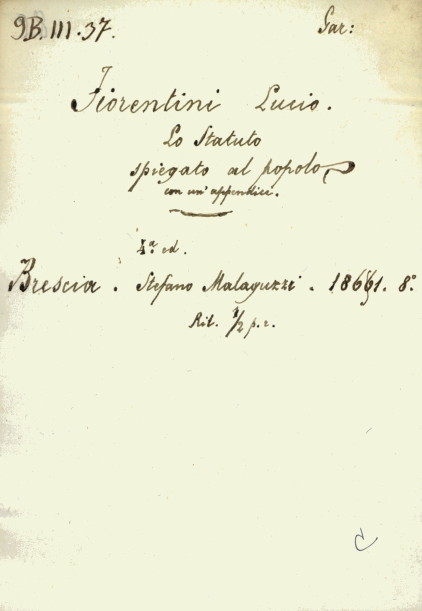 9B.III.37. Gar:
Fiorentini Lucio.
Lo Statuto
spiegato al popolo
con un' appendice.
4ª ed.
Brescia. Stefano Malaguzzi. 1861. 8°
Ril. 1/2 p. r.
C